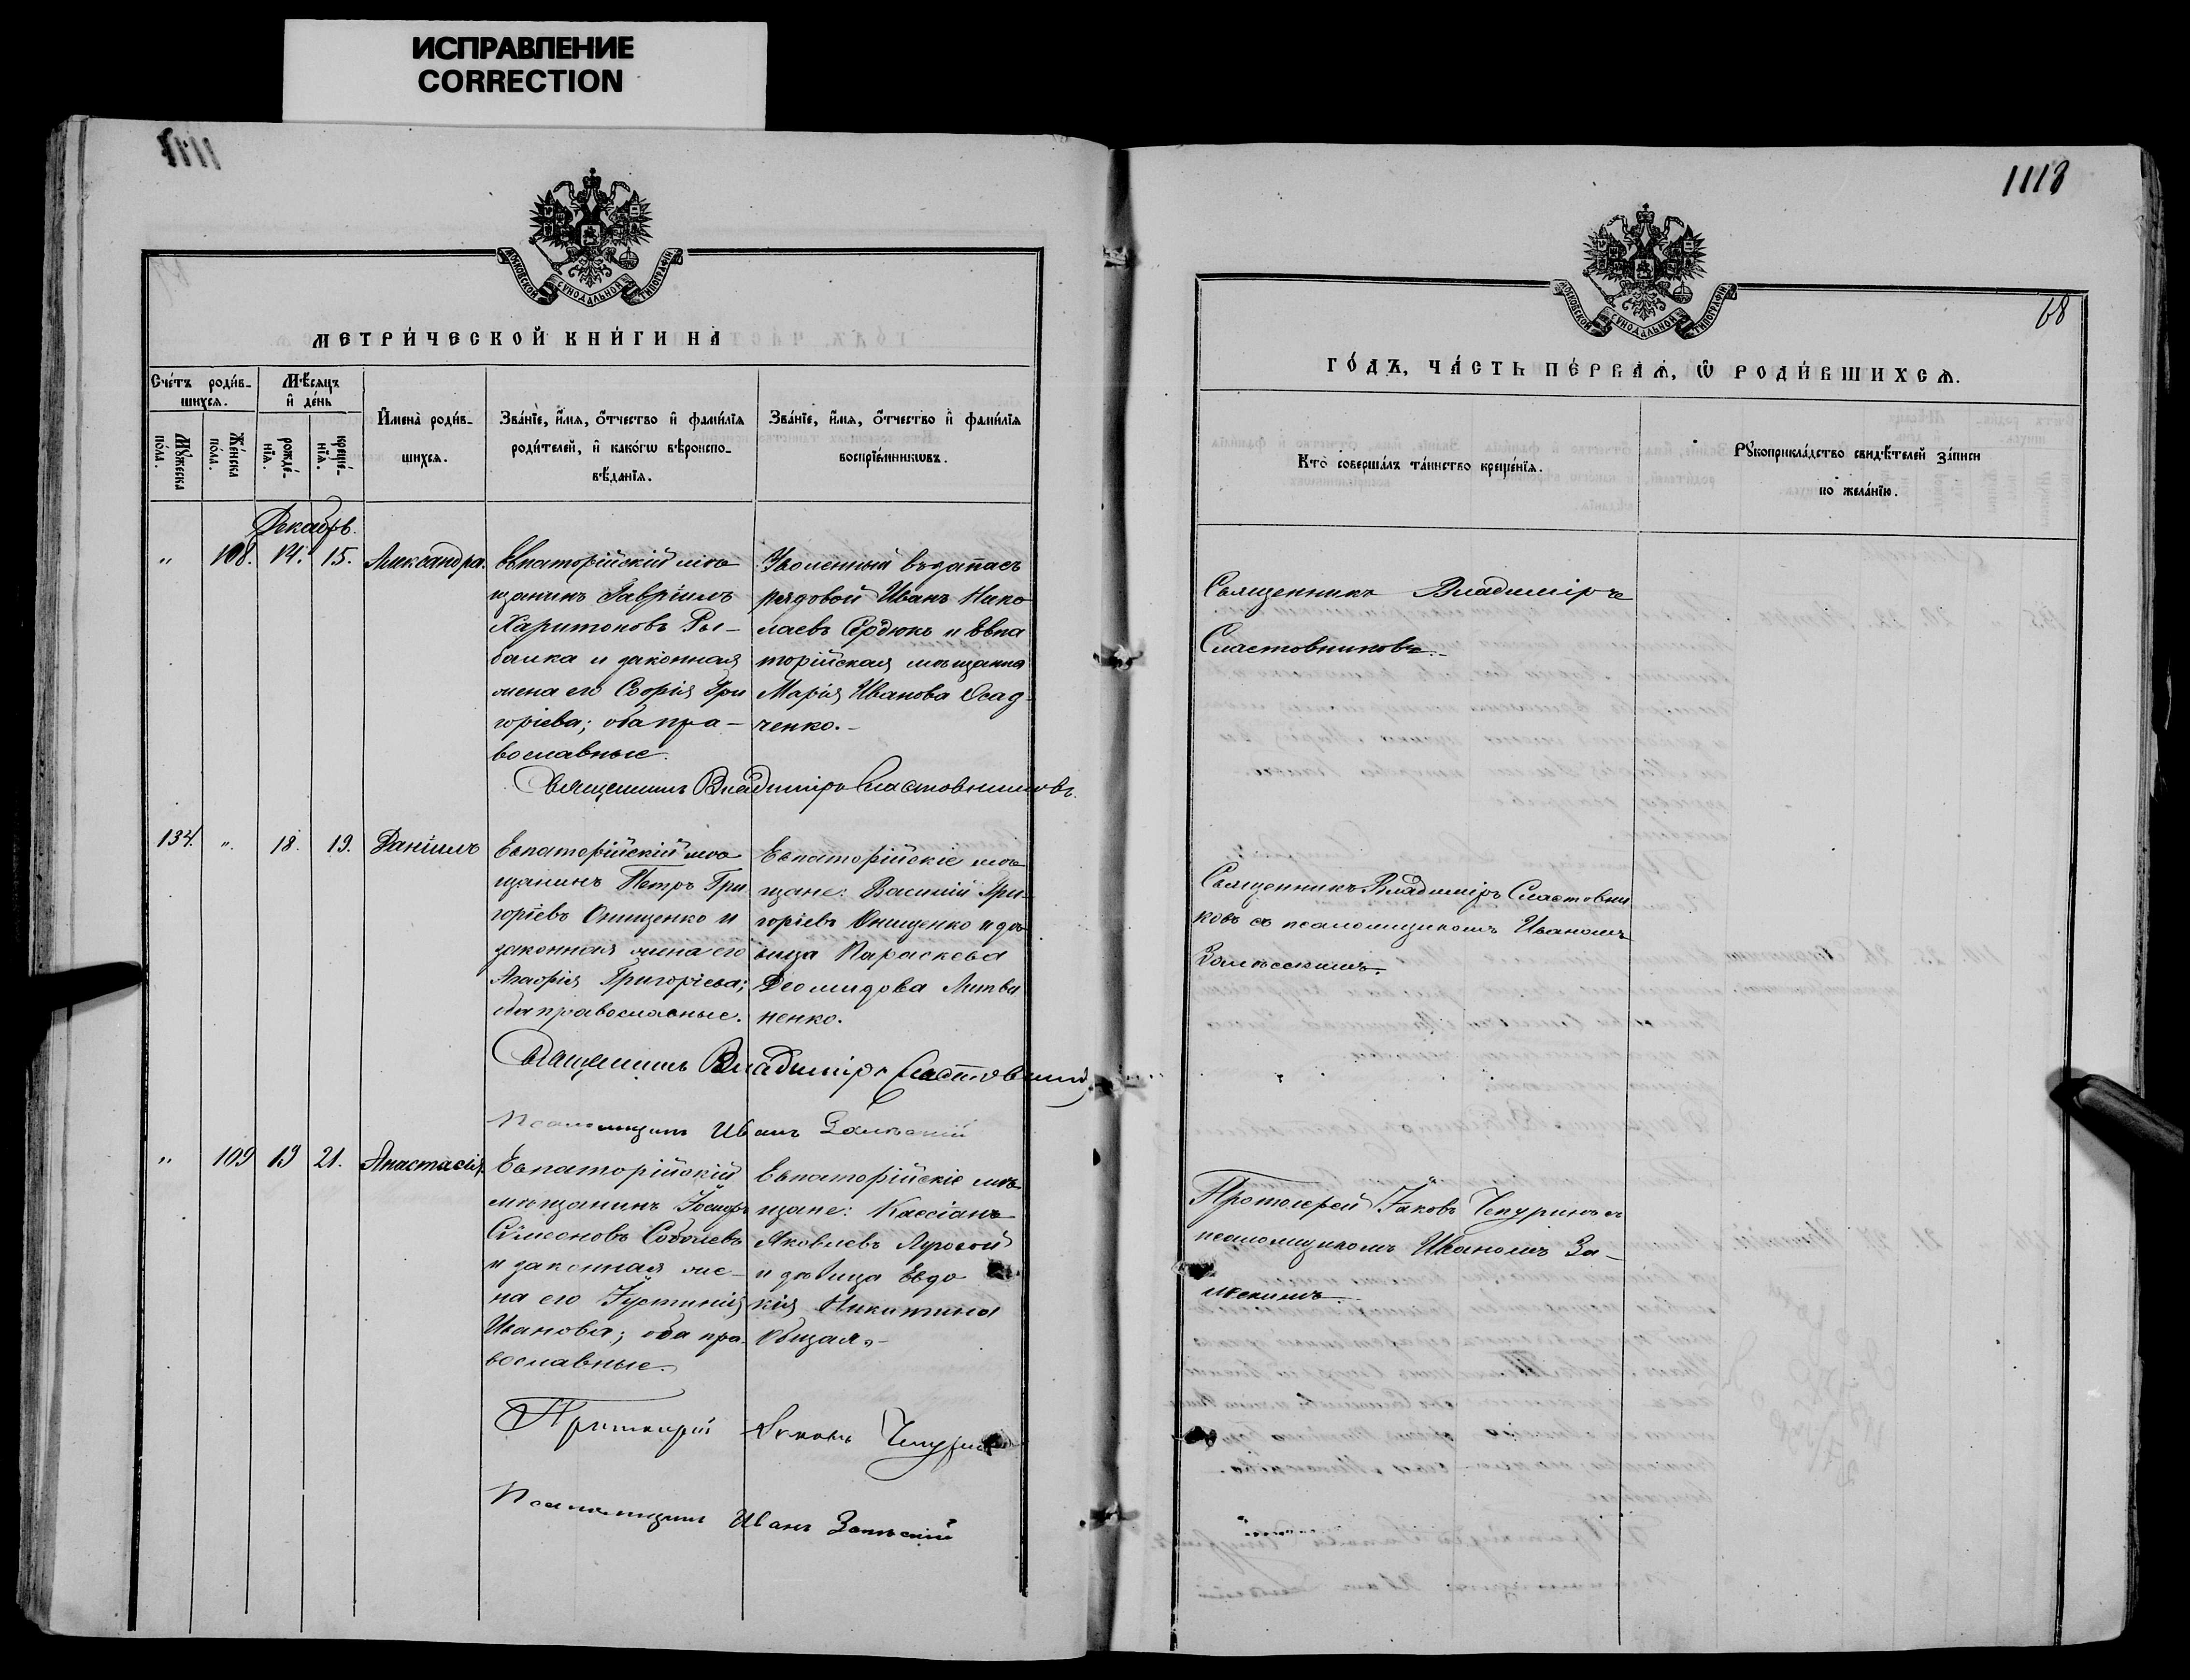 ИСПРАВЛЕНИЕ
CORRECTION
1113
68
МОСКОВСКОЙ СѴНОДАЛЬНОЙ ТИПОГРАФІИ
МЕТРИ́ЧЕСКОЙ КНИ́ГИ НА
Сче́тъ роди́в-
шихсѧ.
Мѣ́сѧцъ
и҆ де́нь
Мꙋ́жеска
по́ла.
Же́нска
по́ла.
рожде́-
нїѧ.
креще́-
нїѧ.
И҆мена̀ роди́в-
шихсѧ.
Зва́нїе, и҆́мѧ, ѻ҆́тчество и҆ фами́лїѧ
роди́телей, и҆ како́гѡ вѣроиспо-
вѣ́данїѧ.
Зва́нїе, и҆́мѧ, ѻ҆́тчество и҆ фами́лїѧ
воспрїе́мникѡвъ.
Декабрь.
„ 108. 14. 15. Александра.
Евпаторійскій мѣ-
щанинъ Гавріилъ
Харитоновъ Ры-
балка и законная
жена его Софія Гри
горіева; оба пра-
вославные.
Уволенный въ запасъ
рядовой Иванъ Нико
лаевъ Сердюкъ и Евпа
торійская мѣщанка
Марія Иванова Осад-
ченко.-
Священникъ Владиміръ Сластовниковъ.
134. „ 18. 19. Даніилъ
Евпаторійскій мѣ
щанинъ Петръ Гри
горіевъ Онищенко и
законная жена его
Агафія Григоріева;
оба православные.
Евпаторійскіе мѣ
щане: Василій Гри-
горіевъ Онищенко и дѣ
вица Параскева
Деомидова Литви
ненко.
Священникъ Владиміръ Сластовник
Псаломщикъ Иванъ Залѣскій
„ 109 19 21. Анастасія.
Евпаторійскій
мѣщанинъ Іосифъ
Сѵмеоновъ Соболевъ
и законная же-
на его Іустинія
Иванова; оба пра-
вославные.
Евпаторійскіе мѣ-
щане: Кассіанъ
Яковлевъ Луговой
и дѣвица Евдо
кія Никитина
Общая.-
Протоіерей Іаковъ Чепуринъ
Псаломщикъ Иванъ Залѣскій
МОСКОВСКОЙ СѴНОДАЛЬНОЙ ТИПОГРАФІИ
ГО́ДЪ, ЧА́СТЬ ПЕ́РВАѦ, Ѡ҆ РОДИ́ВШИХСѦ.
Кто̀ соверша́лъ та́инство креще́нїѧ.
Рꙋкоприкла́дство свидѣ́телей за́писи
по жела́нїю.
Священникъ Владиміръ
Сластовниковъ.-
Священникъ Владиміръ Сластовни
ковъ съ псаломщикомъ Иваномъ
Залѣсскимъ.
Протоіерей Іаковъ Чепуринъ съ
псаломщикомъ Иваномъ За-
лѣскимъ.